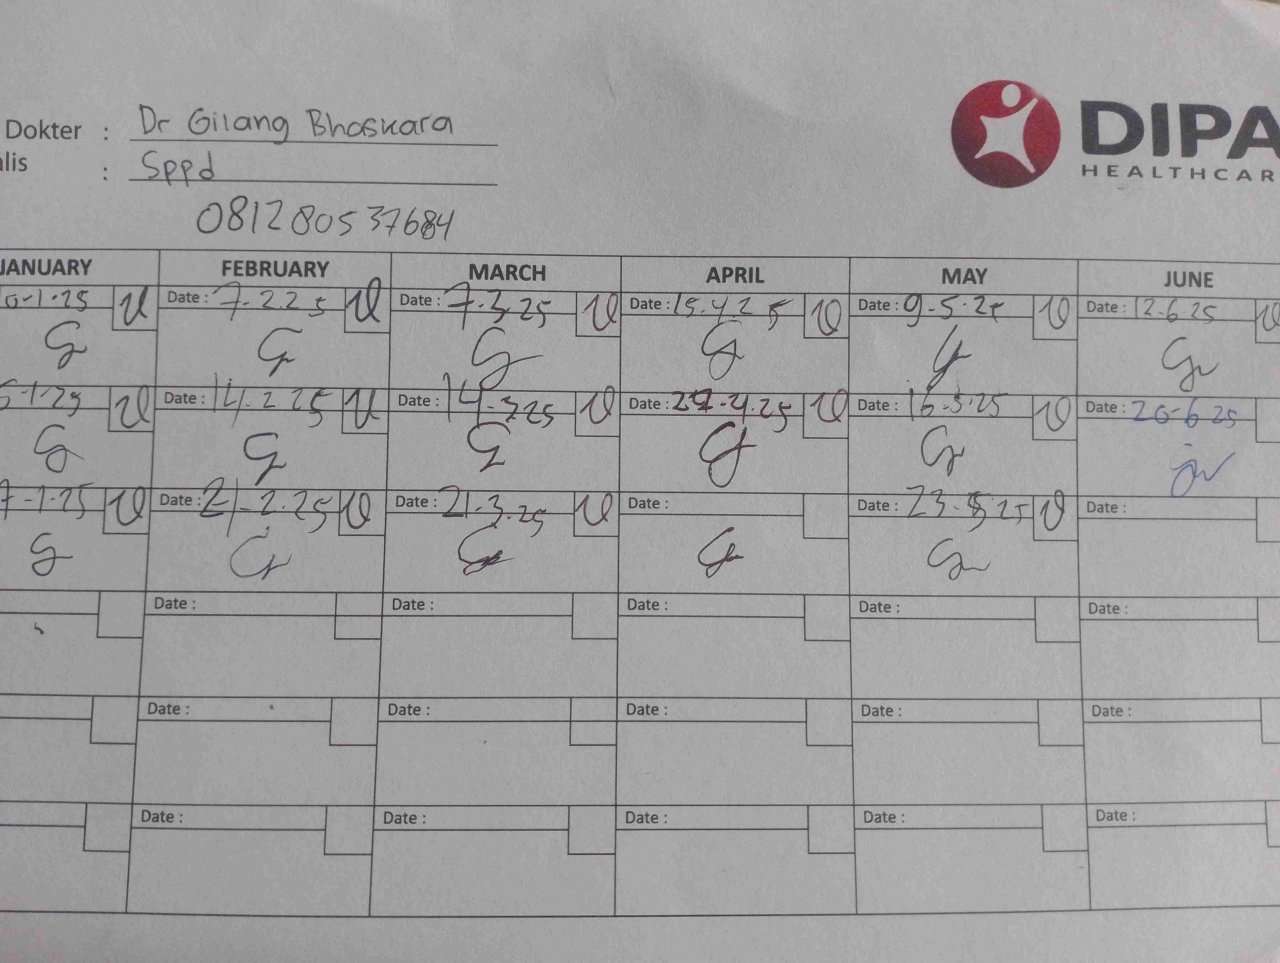 Dokter : Dr Gilang Bhaskara
alis : Sppd
081280537684
DIPA
HEALTHCAR
JANUARY FEBRUARY MARCH APRIL MAY JUNE
0-1-25 Date : 7-2 25 Date : 7-3.25 Date : 15.4.25 Date : 9-5-25 Date : 12-6-25
5-1-25 Date : 14-2 25 Date : 14-325 Date : Date : 16-5-25 Date : 26-6 25
7-1-25 Date : 21-2.25 Date : 21-3.25 Date : Date : 23-5-25 Date :
Date : Date : Date : Date : Date :
Date : Date : Date : Date : Date :
Date : Date : Date : Date : Date :